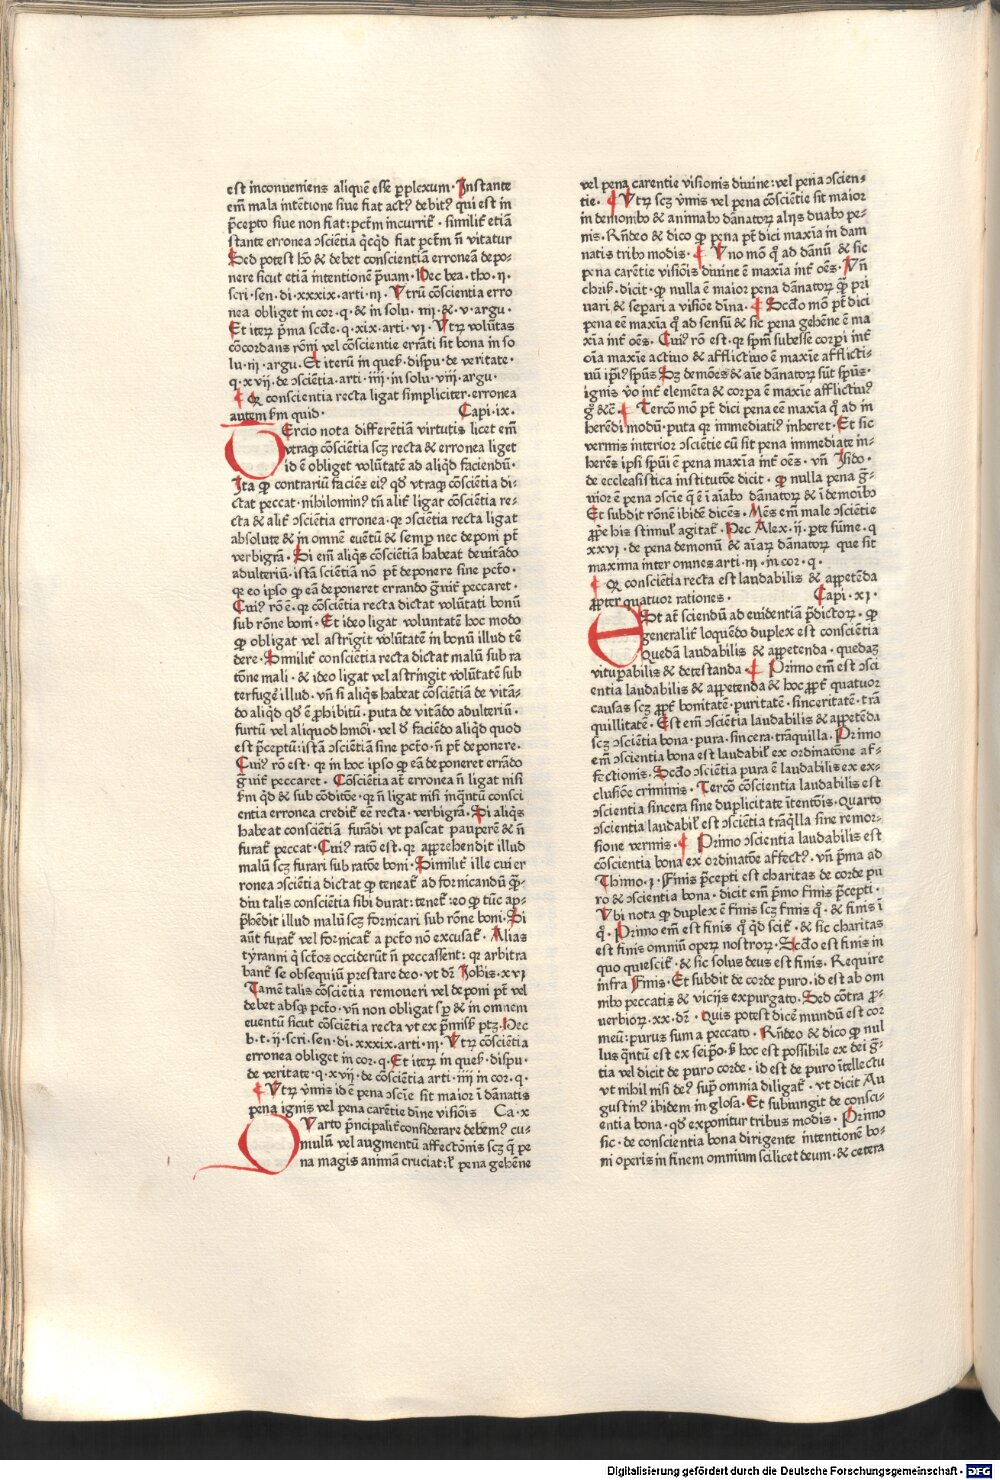 est inconueniens aliquē esse ꝑplexum· Instante
em̄ mala intētione siue fiat actꝰ debitꝰ qui est in
p̄cepto siue non fiat: pctm̄ incurrit· similit̄ etiā
stante erronea ↄsciētia qͥcqͥd fiat pctm̄ n̄ vitatur
Sed potest hō & debet conscientiā erroneā depo-
nere sicut etiā intentionē p̄uam· Hec bea· tho· ii·
scri· sen· di· xxxix· arti· iij· Vtrū cōscientia erro
nea obliget in cor· q· & in solu· iiij· & v· argu·
Et iteꝝ p̄ma scd̄e· q· xix· arti· vi· Vtꝝ volūtas
cōcordans rōni vel cōscientie errāti sit bona in so
lu· iij· argu· Et iterū in quesͭ· dispu· de veritate·
q· xvij· de ↄsciētia· arti· iiij· in solu· viij· argu·
Qꝛ conscientia recta ligat simpliciter· erronea
autem sm̄ quid· Capi· ix·
TErcio nota differētiā virtutis licet em̄
vtraqꝫ cōsciētia scꝫ recta & erronea liget
id ē obliget volūtatē ad aliqd̄ faciendū·
Ita ꝙ contrariū faciēs eiꝰ qd̄ vtraqꝫ cōsciētia di-
ctat peccat· nihilominꝰ tn̄ alit̄ ligat cōsciētia re-
cta & alit̄ ↄsciētia erronea· qꝛ ↄsciētia recta ligat
absolute & in omnē euētū & semꝑ nec deponi pt̄
verbigrā· Si em̄ aliqͥs cōsciētiā habeat deuitādo
adulteriū· istā sciētiā nō pt̄ deponere sine pctō·
qꝛ eo ipso ꝙ eā deponeret errando grauiͭ peccaret·
Cuiꝰ rō ē· qꝛ cōsciētia recta dictat volūtati bonū
sub rōne boni· Et ideo ligat voluntatē hoc modo
ꝙ obligat vel astrīgit volūtatē in bonū illud tē
dere· Similit̄ consciētia recta dictat malū sub ra
tōne mali· & ideo ligat vel astringit volūtatē sub
terfugē illud· vn̄ si aliqͥs habeat cōsciētiā de vitā-
do aliqd̄ qd̄ ē ꝓhibitū· puta de vitādo adulteriū·
furtū vel aliquod hm̄oi· vel d̄ faciēdo aliqd̄ quod
est p̄ceptū: istā ↄsciētiā sine pctō· n̄ pt̄ deponere·
Cuiꝰ rō est· qꝛ in hoc ipso ꝙ eā deponeret errādo
grauiͭ peccaret· Cōsciētia at̄ erronea n̄ ligat nisi
sm̄ qͥd & sub cōditōe· qꝛ n̄ ligat nisi inqͣntū consci
entia erronea credit̄ eē recta· verbigrā· Si aliqͥs
habeat consciētiā furādi vt pascat pauperē & n̄
furat̄ peccat· Cuiꝰ ratō est· qꝛ apprehendit illud
malū scꝫ furari sub ratōe boni· Similit̄ ille cui er
ronea ↄsciētia dictat ꝙ teneat̄ ad fornicandū qͣ̄-
diu talis consciētia sibi durat: tenet̄: eo ꝙ tūc ap-
p̄hēdit illud malū scꝫ fornicari sub rōne boni· Si
aūt furat̄ vel fornicat̄ a pctō nō excusat̄· Alias
tyranni qͥ sctōs occiderūt n̄ peccassent: qꝛ arbitra
bant̄ se obsequiū prestare deo· vt dr̄ Johis· xvi
Tamē talis cōsciētia remoueri vel deponi pt̄ vel
debet absqꝫ pctō· vn̄ non obligat sꝑ & in omnem
euentū sicut cōsciētia recta vt ex p̄missͭ ptꝫ· Hec
b· t· ii· scri· sen· di· xxxix· arti· iij· Vtꝝ cōsciētia
erronea obliget in cor· q· Et iteꝝ in quesͭ· dispu·
de veritate· q· xvij· de cōsciētia arti· iiij in cor· q·
Vtꝝ vermis id ē pena ↄscīe sit maior ī dānatis
pena ignis vel pena carētie diīne visiōis Ca· x
QVarto p̄ncipalit̄ cōsiderare debemꝰ cu-
mulū vel augmentū affectōnis scꝫ q̄ pe
na magis animā cruciat: vͭ pena gehēne
vel pena carentie visionis diuine: vel pena ↄscien-
tie· Vtꝝ scꝫ v̄mis vel pena cōsciētie sit maior
in demonibꝰ & animabꝰ dānatoꝝ aliis duabꝰ pe-
nis· Rn̄deo & dico ꝙ pena pt̄ dici maxīa in dam
natis tribꝰ modis· Vno mō qͦ ad dānū & sic
pena carētie visiōis diuine ē maxīa int̄ oēs· Vn̄
chrisͭ· dicit· ꝙ nulla ē maior pena dānatoꝝ qͣ̄ pri
uari & seꝑari a visiōe diīna· Scd̄o mō pt̄ dici
pena eē maxīa qͦ ad sensū & sic pena gehēne ē ma
xīa int̄ oēs· Cuiꝰ rō est· qꝛ sꝑm subesse corꝑi int̄
oīa maxīe actiuo & afflictiuo ē maxīe afflicti-
uū ipiꝰ spūs Sꝫ demōes & aīe dānatoꝝ sūt spūs·
ignis v̄o int̄ elemēta & corꝑa ē maxīe afflictiuꝰ
gͦ &c̄· Tercō mō pt̄ dici pena eē maxīa qͦ ad in
herēdi modū· puta qꝛ immediatiꝰ inheret· Et sic
vermis interior ↄsciētie cū sit pena immediate in-
herēs ipsi spūi ē pena maxīa int̄ oēs· vn̄ Isido·
de ecclesiastica institutōe dicit· ꝙ nulla pena gͣ-
uior ē pena ↄscīe q̄ ē ī aīabꝰ dānatoꝝ & ī demoībꝰ
Et subdit rōnē ibidē dicēs· Mēs em̄ male ↄsciētie
ꝓpͥe his stimulͭ agitat̄· Hec Alex· ij· ꝑte sūme· q
xxvi· de pena demonū & aīaꝝ dānatoꝝ que sit
maxima inter omnes arti· iij· in cor· q·
Qꝛ consciētia recta est laudabilis & appetēda
ꝓpter quatuor rationes· Capi· xi·
ESt at̄ sciendū ad euidentiā p̄dictoꝝ· ꝙ
generalit̄ loquēdo duplex est consciētia
Quedā laudabilis & appetenda· quedaꝫ
vituꝑabilis & detestanda· Primo em̄ est ↄsci
entia laudabilis & appetenda & hoc ꝓpt̄ quatuor
causas scꝫ ꝓpt̄ bonitatē· puritatē· sinceritatē· trā
quillitatē· Est em̄ ↄsciētia laudabilis & appetēda
scꝫ ↄsciētia bona· pura· sincera· trāquilla· Primo
em̄ ↄscientia bona est laudabilͭ ex ordinatōne af-
fectionis· Scd̄o ↄsciētia pura ē laudabilis ex ex-
clusiōe criminis· Tercō cōscientia laudabilis est
ↄscientia sincera sine duplicitate ītentōis· Quarto
ↄscientia laudabilͭ est ↄsciētia trāqͥlla sine remor-
sione vermis· Primo ↄscientia laudabilis est
cōscientia bona ex ordinatōe affectꝰ· vn̄ p̄ma ad
Thimo· i· Finis p̄cepti est charitas de corde pu
ro & ↄscientia bona· dicit em̄ p̄mo finis p̄cepti·
Vbi nota ꝙ duplex ē finis scꝫ finis qͦ· & finis ī
qͦ· Primo em̄ est finis qͦ qͥd scit̄· & sic charitas
est finis omniū operꝝ nostroꝝ· Scd̄o est finis in
quo quiescit̄· & sic solus deus est finis· Require
infra Finis· Et subdit de corde puro· id est ab om
nibꝰ peccatis & viciis expurgato· Sed cōtra ꝓ-
uerbioꝝ· xx· dr̄· Quis potest dicē mundū est cor
meū: purus sum a peccato· Rn̄deo & dico ꝙ nul
lus qͣntū est ex seipō· sͭ hoc est possibile ex dei gͣ-
tia vel dicit de puro corde· id est de puro ītellectu
vt nihil nisi deꝰ suꝑ omnia diligat̄· vt dicit Au
gustinꝰ ibidem in glosa· Et subiungit de consci-
entia bona· qd̄ exponitur tribus modis· Primo
sic· de conscientia bona dirigente intentionē bo-
ni operis in finem omnium scilicet deum· & cetera
Digitalisierung gefördert durch die Deutsche Forschungsgemeinschaft - DFG